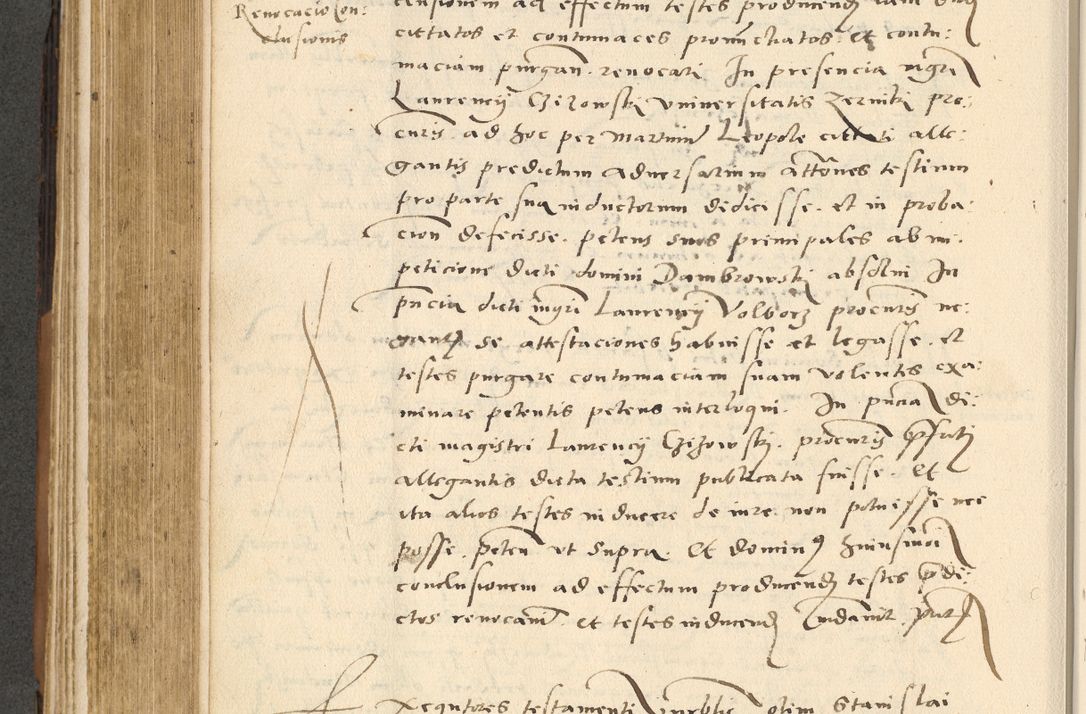 Renocacio con:
clusionis
clusionem ad effectum testes producend
citatos et contumaces pronunctiatos et contu:
maciam purgan. renocati In presencia mgri
Laurencij Czizowski Vniversitatis Zerniki pro:
curis ad hoc per martinum Leopole citati alle:
gantis predictum adversarium attones testium
pro parte sua inductorum didicisse. et in proba
cion defecisse. petens suos principales ab im
peticione dicti domini Dambrowski absolui In
pncia dicti mgri Laurencij Volborz procuris ne:
gantis se attestaciones habuisse et legasse. et
testes purgare contumaciam suam volentis exa:
minare petentis petens interloqui. In pncia di:
cti magistri Laurencij Czizowski procuris prefati
allegantis dicta testium publicata fuisse. et
ita alios testes inducere de iure non potuisse nec
posse. peten vt supra. et dominus huiusmoi
conclusionem ad effectum producend testes predi:
ctos renocauit. et testes inducend mandauit. put
Xequtores testamenti publice olim Stanislai